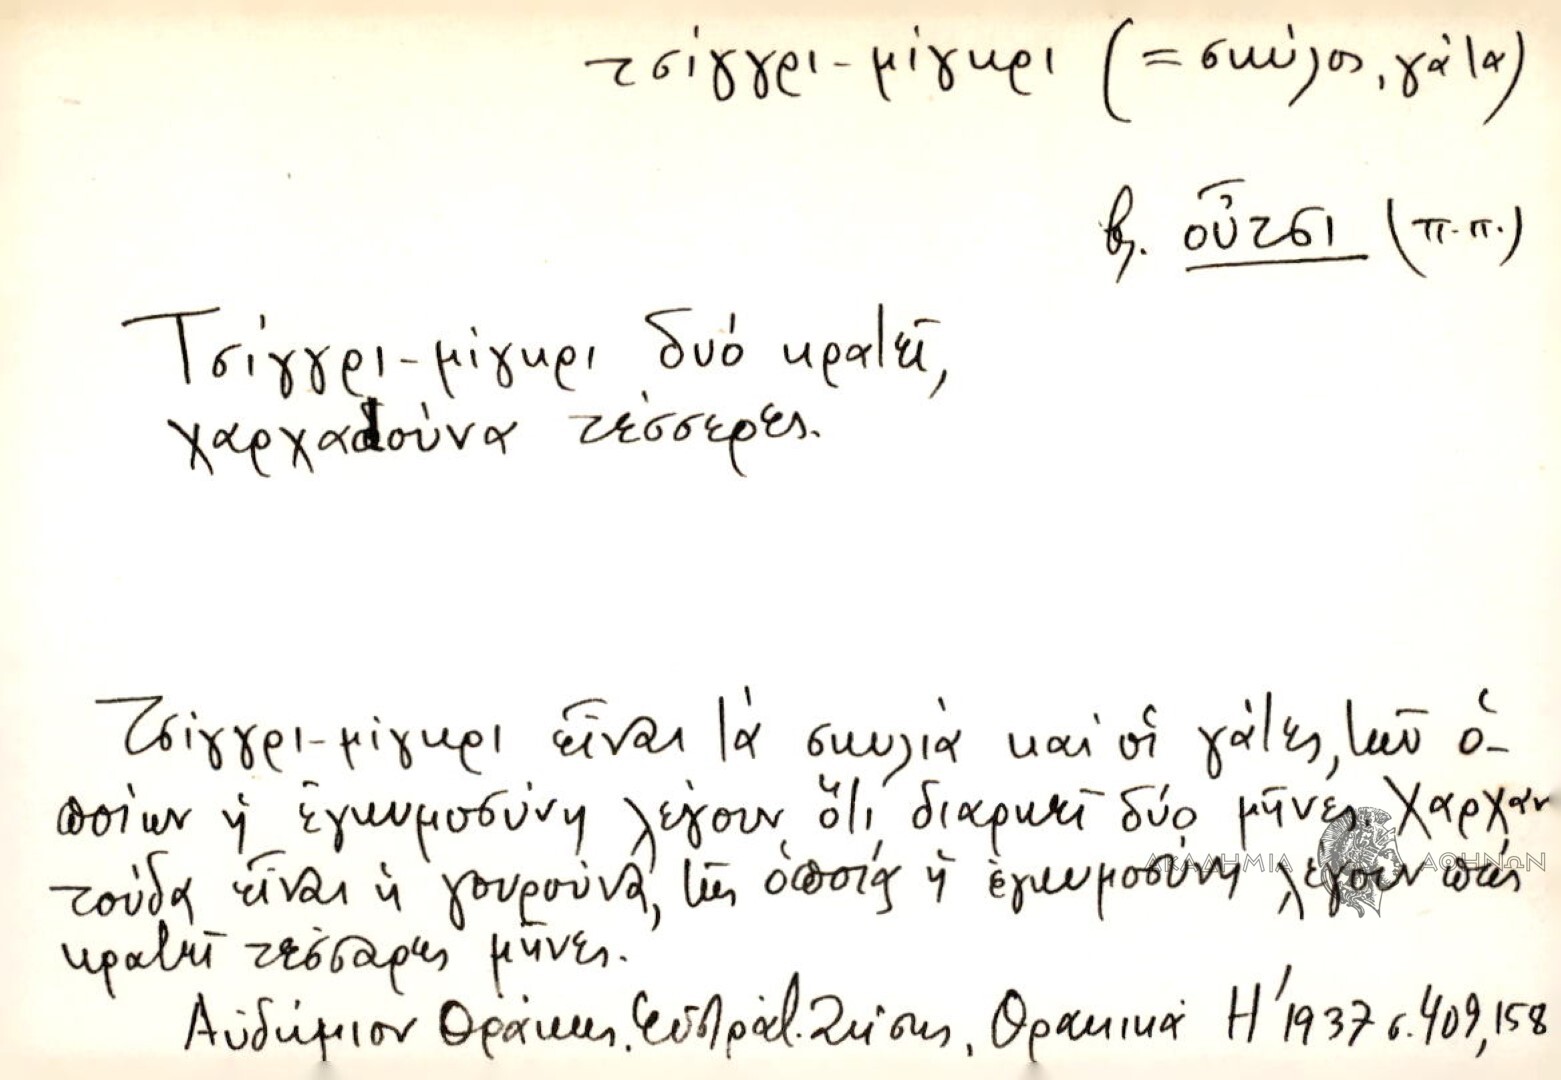 τσίγγρι-μίγκρι (= σκύλος, γάτα)
βλ. οὖτσι (π.π.)
Τσίγγρι-μίγκρι δυό κρατεῖ,
χαρχαdούνα τέσσερες.
Τσίγγρι-μίγκρι εἶναι τά σκυλιά καί οἱ γάτες, τῶν ὁ-
ποίων ἡ ἐγκυμοσύνη λέγουν ὅτι διαρκεῖ δύο μῆνες. Χαρχαν
τούδα εἶναι ἡ γουρούνα, τῆς ὁποίας ἡ ἐγκυμοσύνη λέγουν πώς
κρατεῖ τέσσαρες μῆνες.
Αὐδήμιον Θράκης, Εὐστρατ. Ζήσης, Θρακικά Η΄ 1937 σ. 409, 158
ΑΚΑΔΗΜΙΑ ΑΘΗΝΩΝ